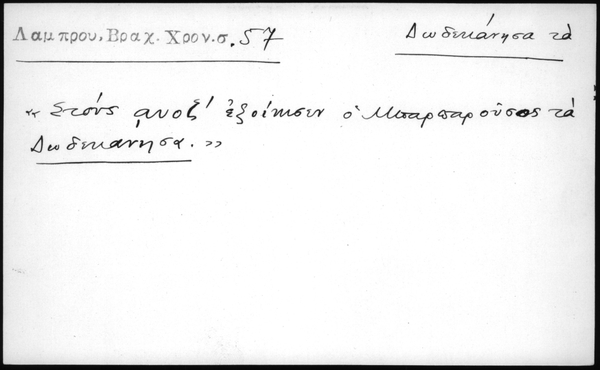 Λαμπρου, Βραχ. Χρον.σ. 57
Δωδεκάνησα τὰ
« Στούς ͵αυοζʹ ἐξοίκησεν ὁ Μπαρπαροῦσος τὰ
Δωδεκανησα. »